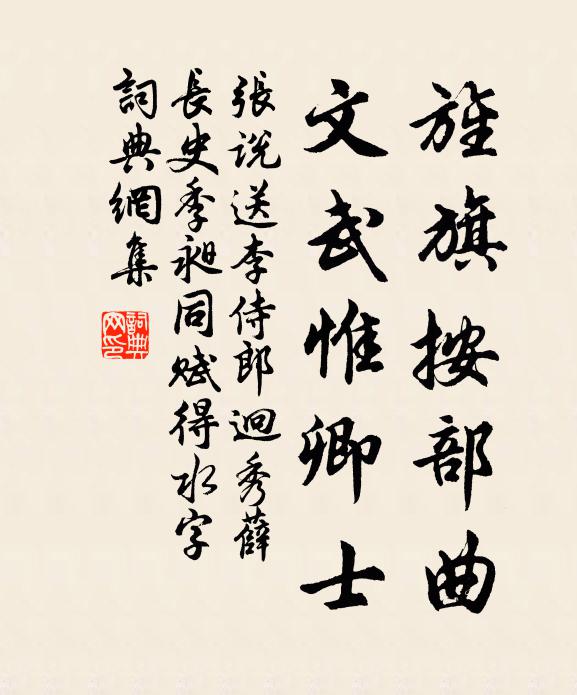 旌旗按部曲
文武惟卿士
張說送李侍郎迥秀薛
長史季昶同賦得水字
詞典網集
詞典網印